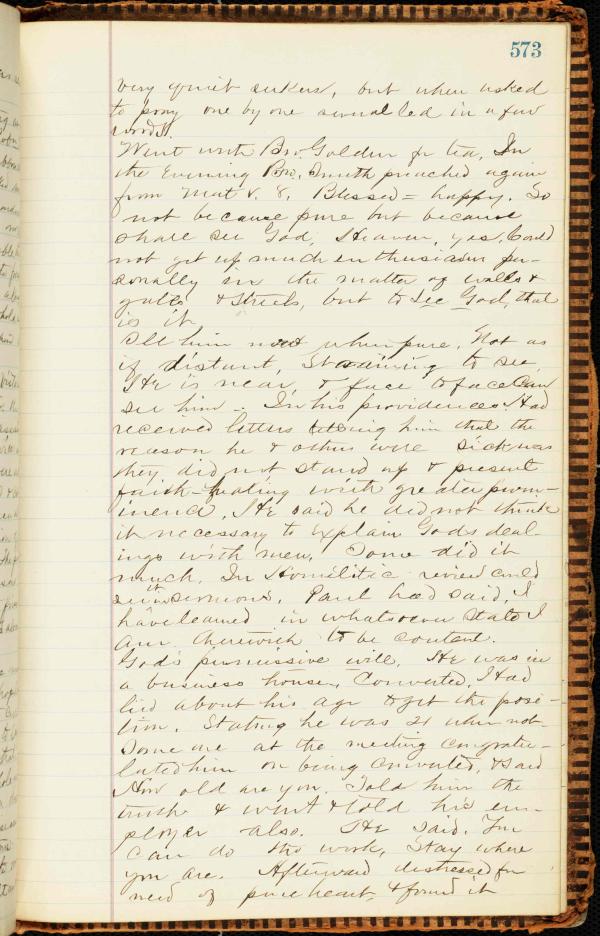 573
very quiet seekers, but when asked
to pray one by one several led in a few
words.
Went with Bro. Golden for tea, In
the Evening Bro. Smith preached again
from Mat V. 8, Blessed = happy. So
not because pure but because
shall see God, Heaven, yes, Could
not get up much enthusiasm per-
sonally in the matter of walls &
gates & streets, but to See God, that
is it
See him now when pure, Not as
if distant, Straining to see,
He is near, & face to face Can
see him - In his providences. Had
received letters telling him that the
reason he & others were sick was
they did not stand up & present
faith-healing with greater prom-
inence, He said he did not think
it necessary to explain Gods deal-
ings with men, Some did it
much, In Homilitic review could
see it in sermons, Paul had said, I
have learned in whatsoever State I
am therewith to be content.
God's permissive will, He was in
a business house, Converted, Had
lied about his age to get the posi-
tion, Stating he was 21 when not
Some one at the meeting congratu-
lated him on being converted, & said
How old are you, Told him the
truth & went & told his em-
ployer also. He said, You
can do the work, Stay where
you are. Afterward distressed for
need of pure heart, & found it